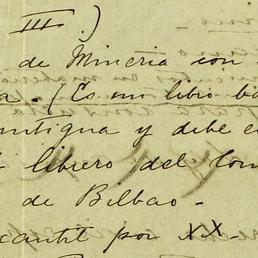 III.)
de Mineria con
a. (Es un libro ba
antigua y debe e
librero del Con
de Bilbao.
cantil por XX.